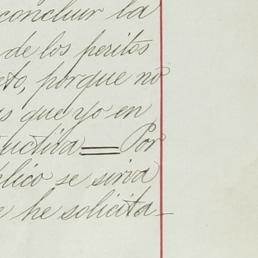 concluir la
de los peritos
eto, porque no
as que yo en
ructiva = Por
élico se sirva
e he solicita-